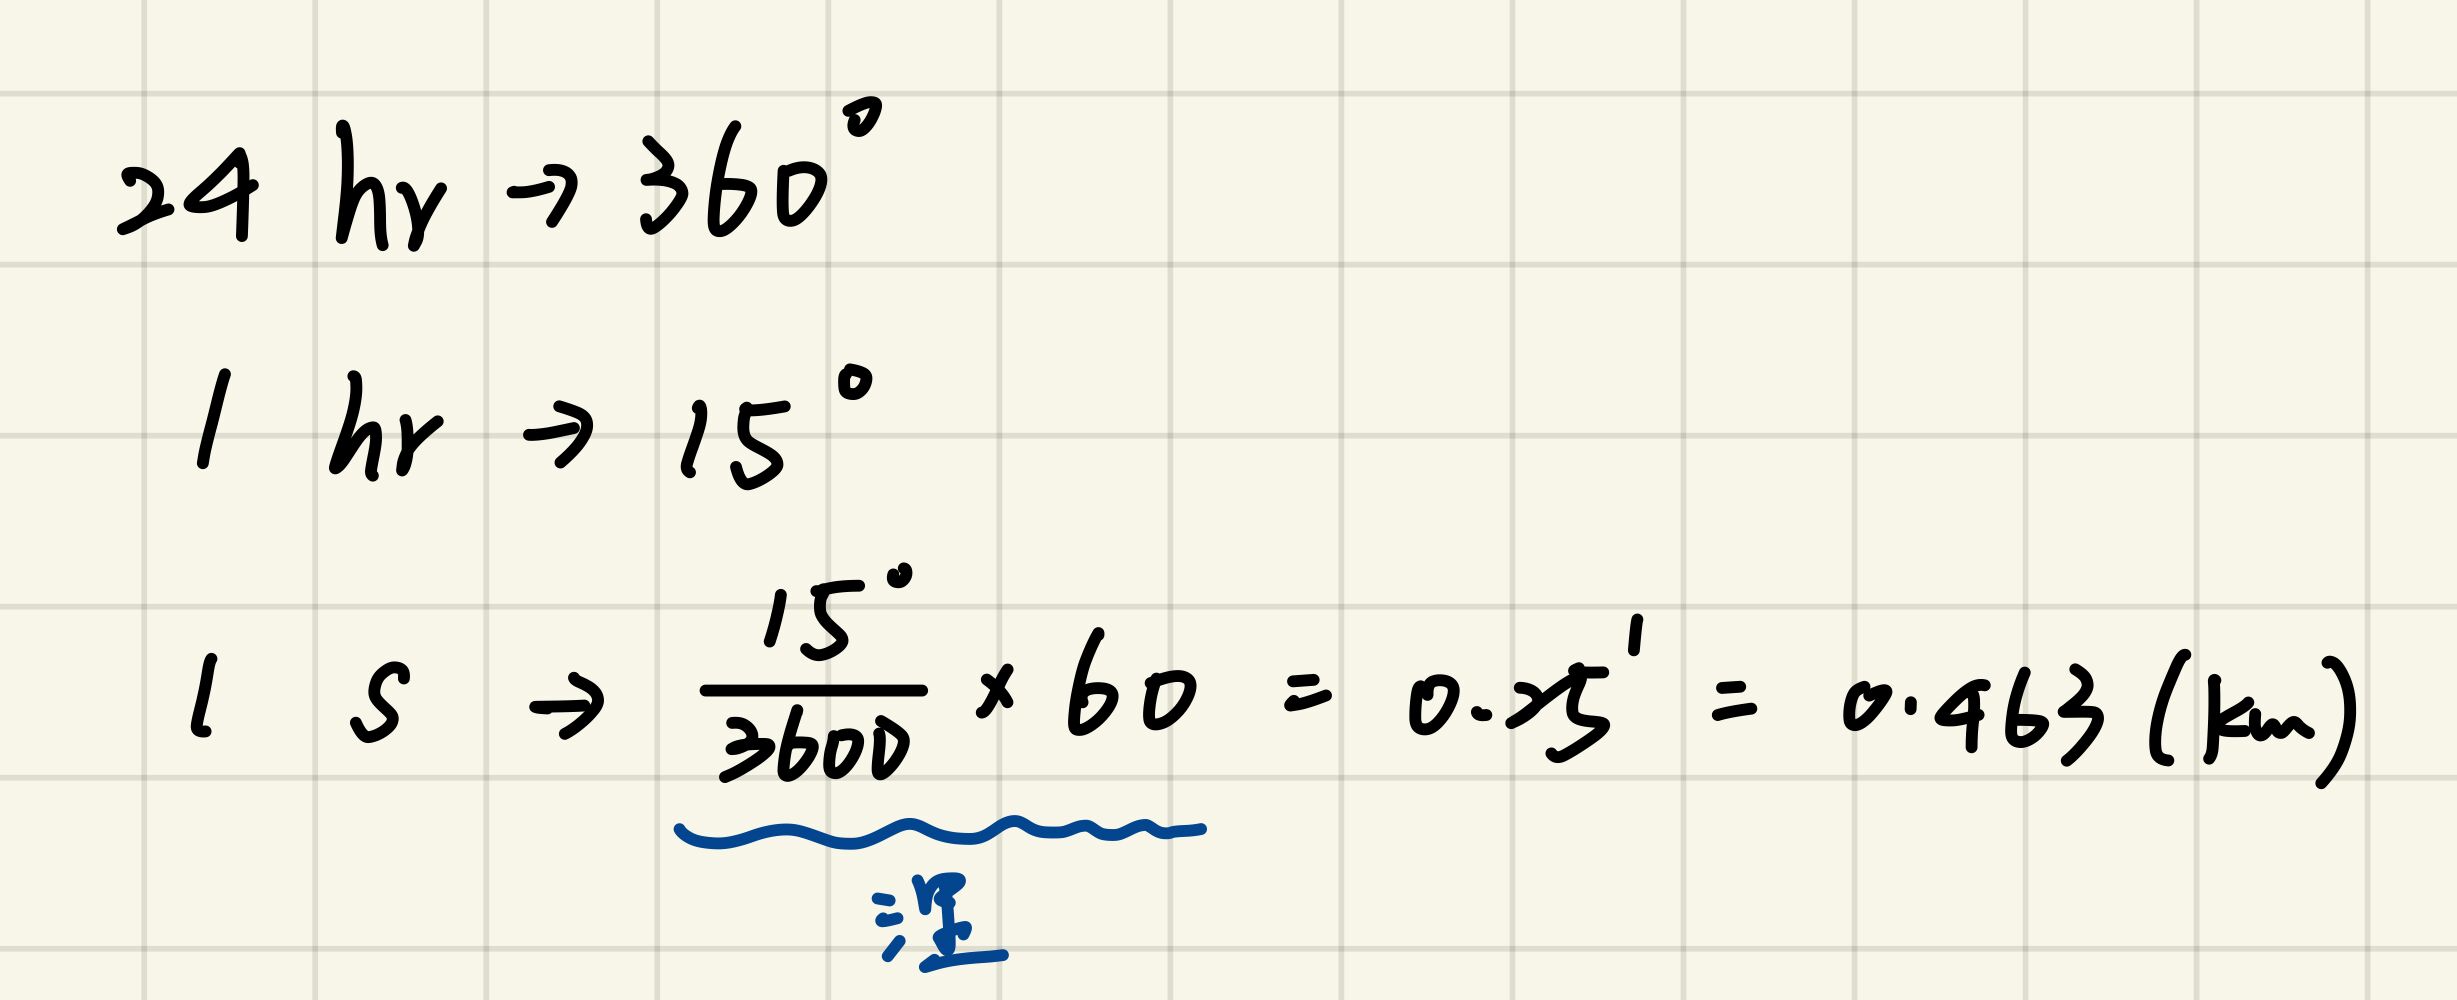 24 hr → 360°
1 hr → 15°
1 s → 15°/3600 × 60 = 0.25' = 0.463 (km)